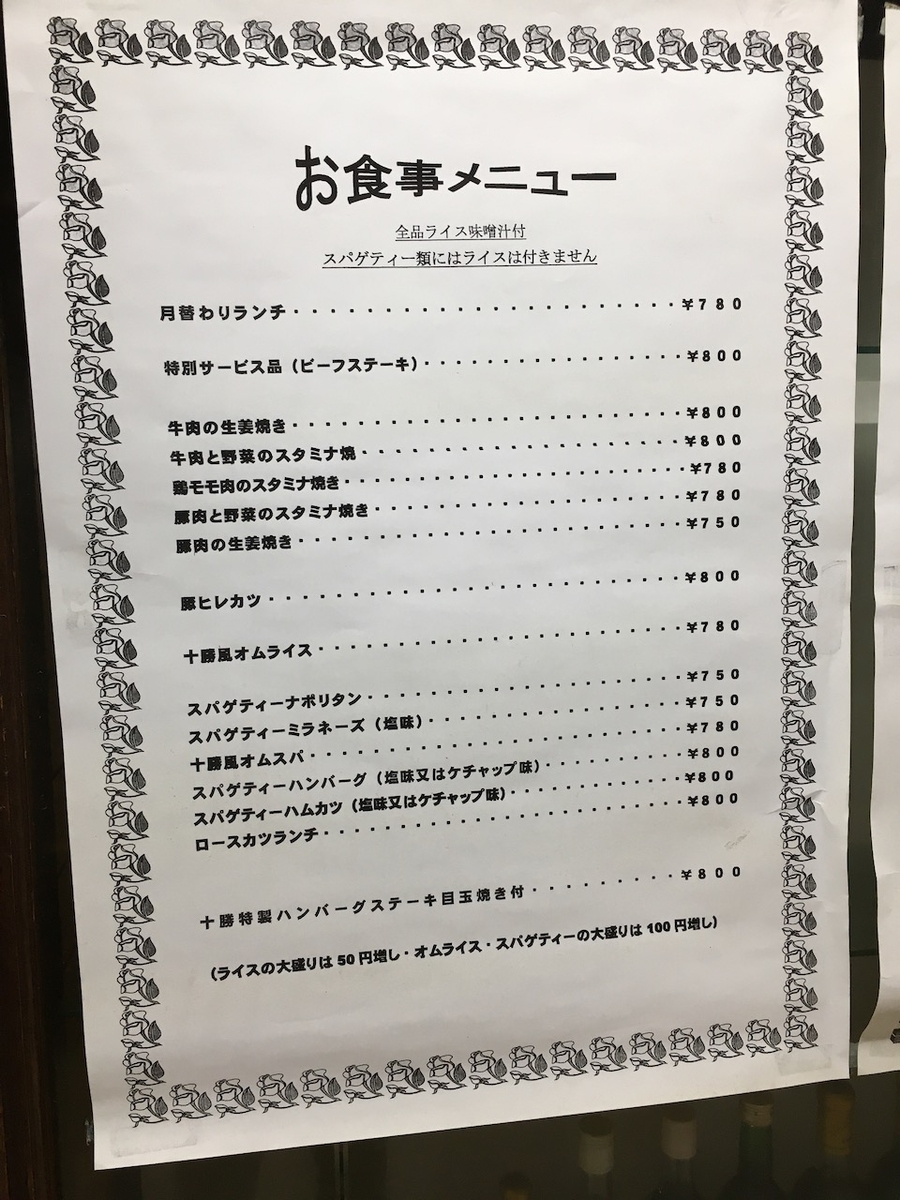 お食事メニュー
全品ライス味噌汁付
スパゲティー類にはライスは付きません
月替わりランチ・・・・・・・・・・・・・・・・・・・・・・・¥780
特別サービス品（ビーフステーキ）・・・・・・・・・・・・・・・・・¥800
牛肉の生姜焼き・・・・・・・・・・・・・・・・・・・・・・・¥800
牛肉と野菜のスタミナ焼・・・・・・・・・・・・・・・・・・・・¥800
鶏モモ肉のスタミナ焼き・・・・・・・・・・・・・・・・・・・・・¥780
豚肉と野菜のスタミナ焼き・・・・・・・・・・・・・・・・・・・¥780
豚肉の生姜焼き・・・・・・・・・・・・・・・・・・・・・・・¥750
豚ヒレカツ・・・・・・・・・・・・・・・・・・・・・・・・・¥800
十勝風オムライス・・・・・・・・・・・・・・・・・・・・・・¥780
スパゲティーナポリタン・・・・・・・・・・・・・・・・・・・¥750
スパゲティーミラネーズ（塩味）・・・・・・・・・・・・・・・・¥750
十勝風オムスパ・・・・・・・・・・・・・・・・・・・・・・・¥780
スパゲティーハンバーグ（塩味又はケチャップ味）・・・・・・・・・¥800
スパゲティーハムカツ（塩味又はケチャップ味）・・・・・・・・・・・¥800
ロースカツランチ・・・・・・・・・・・・・・・・・・・・・・¥800
十勝特製ハンバーグステーキ目玉焼き付・・・・・・・・・¥800
（ライスの大盛りは50円増し・オムライス・スパゲティーの大盛りは100円増し）